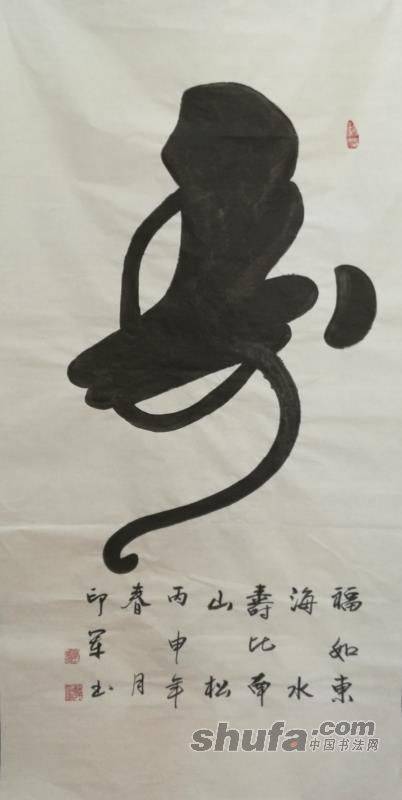 寿
福如東
海水
壽比南
山松
丙申年
春月
印軍书
shufa.com
中国书法网